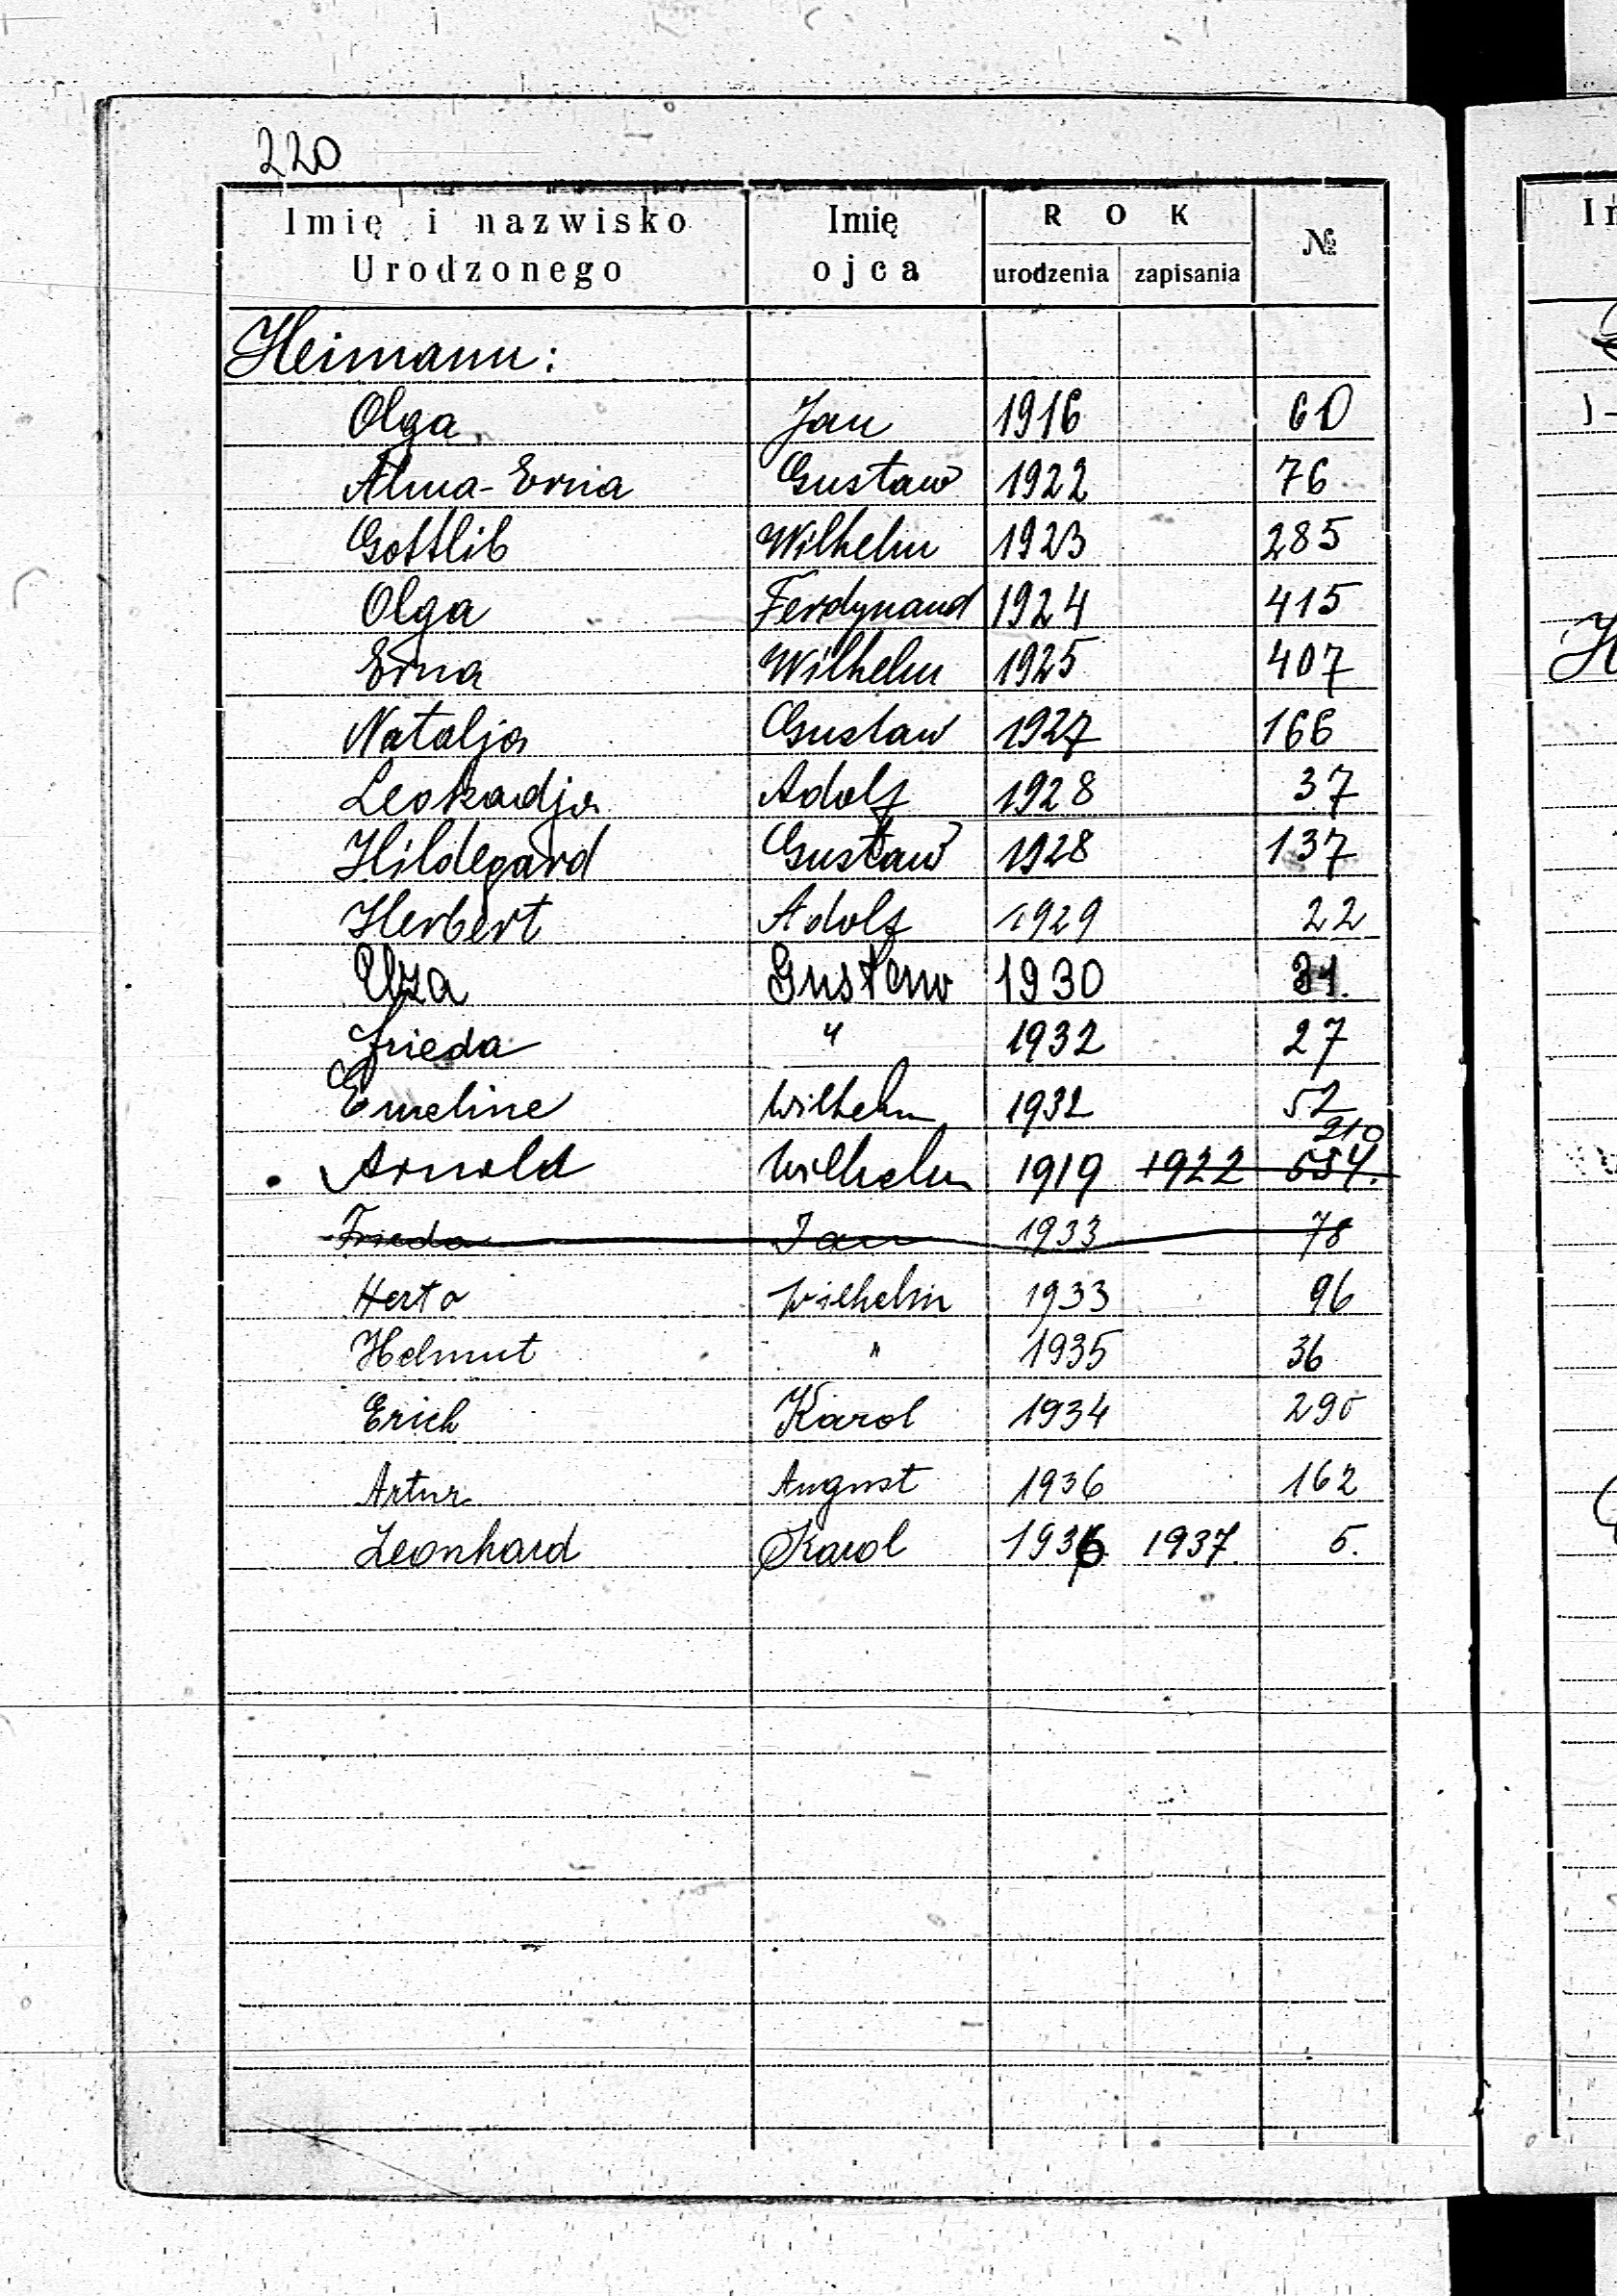 220
Imię i nazwisko Urodzonego Imię ojca ROK urodzenia zapisania №
Heimann:
Olga Jan 1916 60
Alma-Erna Gustaw 1922 76
Gottlib Wilhelm 1923 285
Olga Ferdynand 1924 415
Erna Wilhelm 1925 407
Natalja Gustaw 1927 166
Leokadja Adolf 1928 37
Hildegard Gustaw 1928 137
Herbert Adolf 1929 22
Elza Gustaw 1930 31.
Frieda " 1932 27
Emeline Wilhelm 1932 52
210
Arnold Wilhelm 1919 1922
Frieda Jan 1933 78
Herta Wilhelm 1933 96
Helmut " 1935 36
Erich Karol 1934 290
Artur August 1936 162
Leonhard Karol 1936 1937. 5.